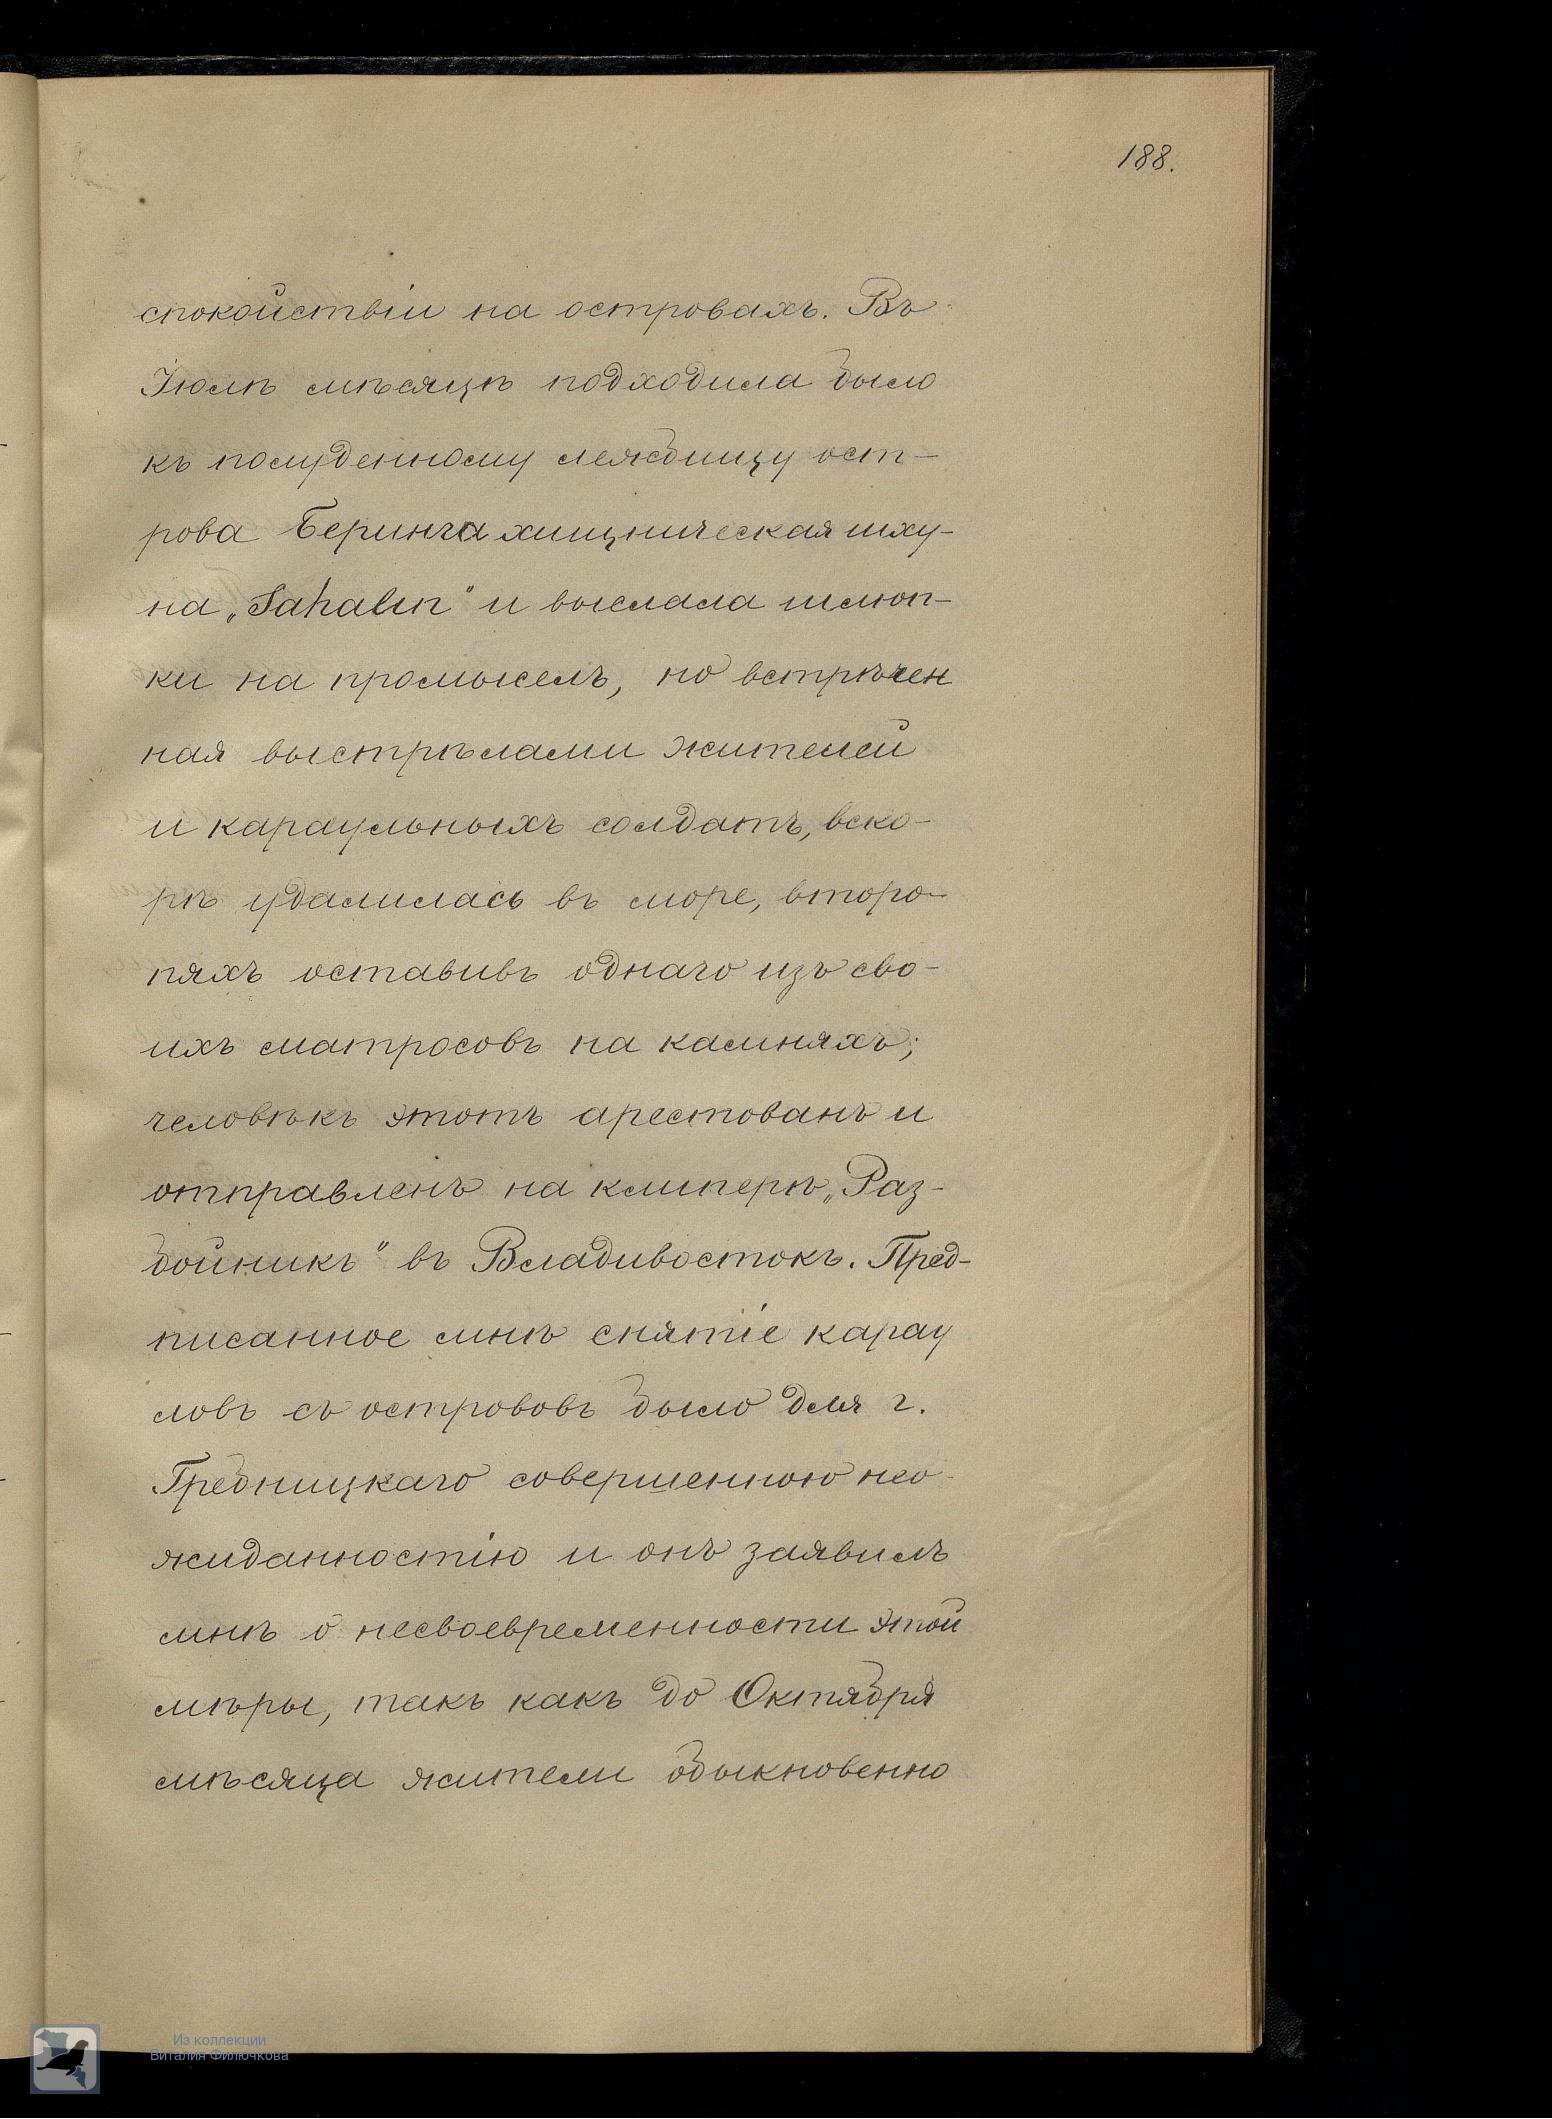 188.
спокойствіи на островахъ. Въ
Іюлѣ мѣсяцѣ подходила было
къ полуденному лежбищу ост-
рова Беринга хищническая шху-
на „Sahalin" и выслала шлюп-
ки на промыселъ, но встрѣчен
ная выстрѣлами жителей
и караульныхъ солдатъ, вско-
рѣ удалилась въ море, второ-
пяхъ оставивъ однаго изъ сво-
ихъ матросовъ на камняхъ;
человѣкъ этотъ арестованъ и
отправленъ на клиперѣ „Раз-
бойникъ" въ Владивостокъ. Пред-
писанное мнѣ снятіе карау
ловъ съ острововъ было для г.
Гребницкаго совершенною нео-
жиданностію и онъ заявилъ
мнѣ о несвоевременности этой
мѣры, такъ какъ до Октября
мѣсяца жители обыкновенно
Из коллекции
Виталия Филючкова